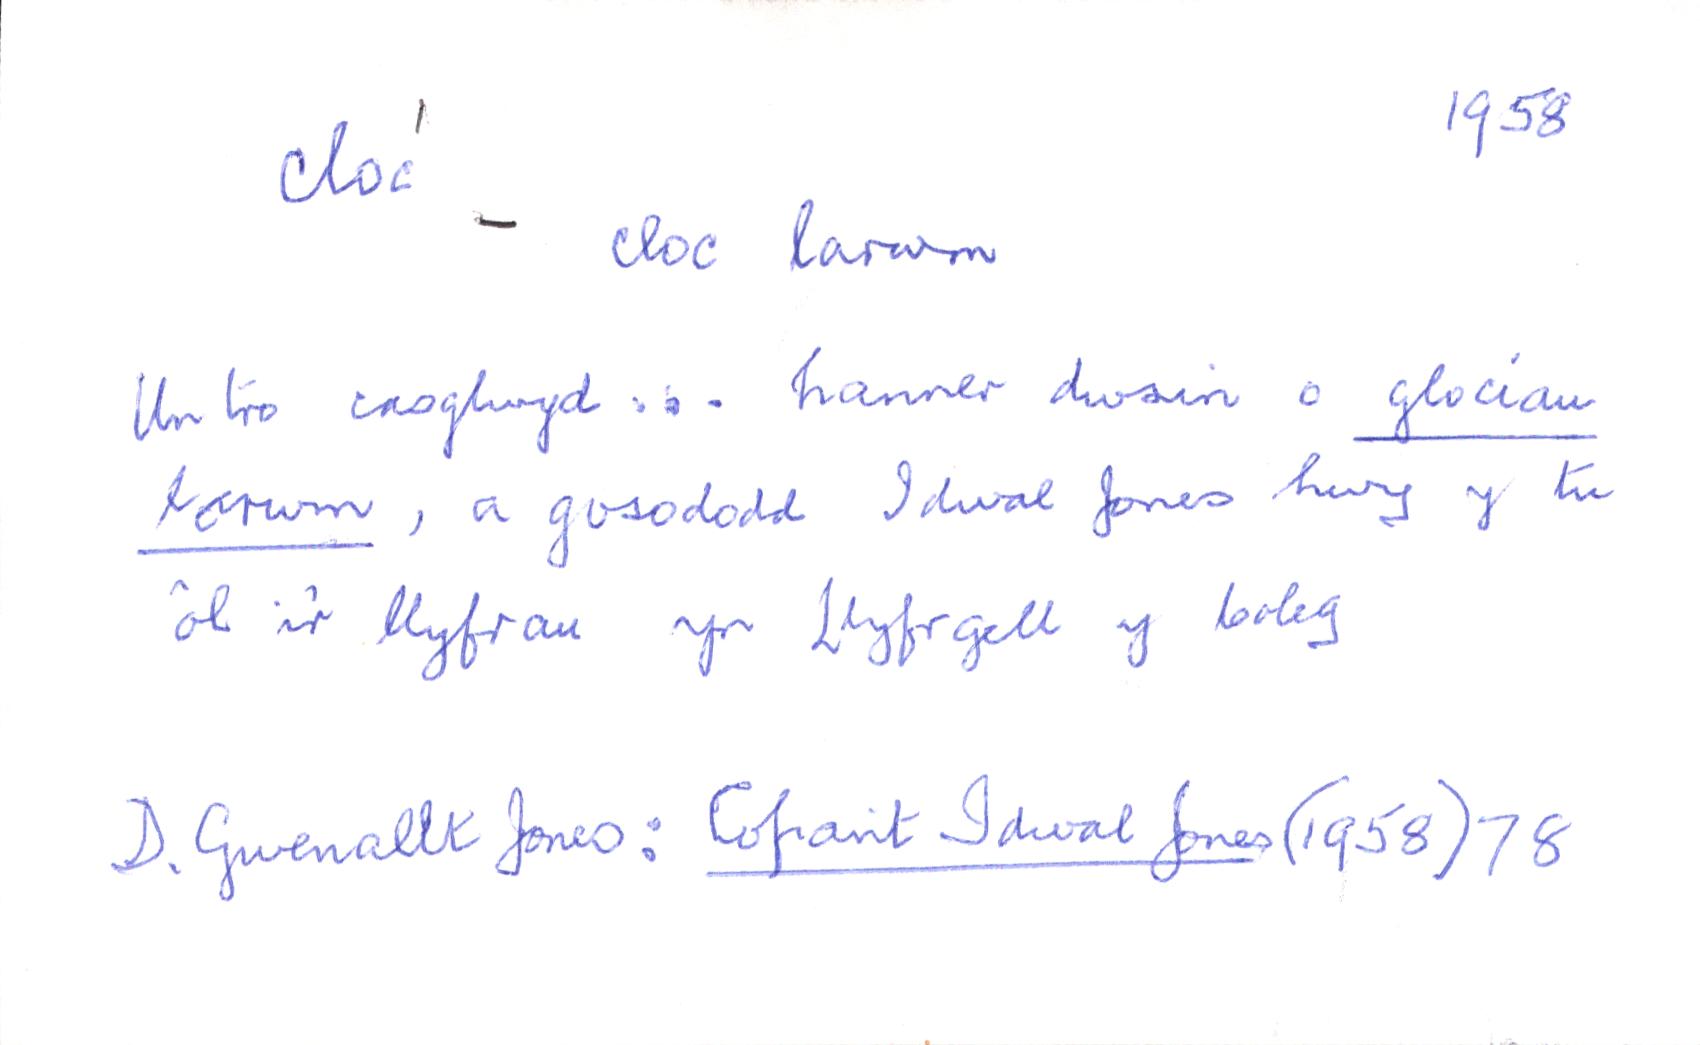 1958
cloc¹
– cloc larwm
Un tro casglwyd ... hanner dwsin o glociau
larwm, a gosododd Idwal Jones hwy y tu
ôl i'r llyfrau yn Llyfrgell y Coleg
D. Gwenallt Jones: Cofiant Idwal Jones (1958) 78